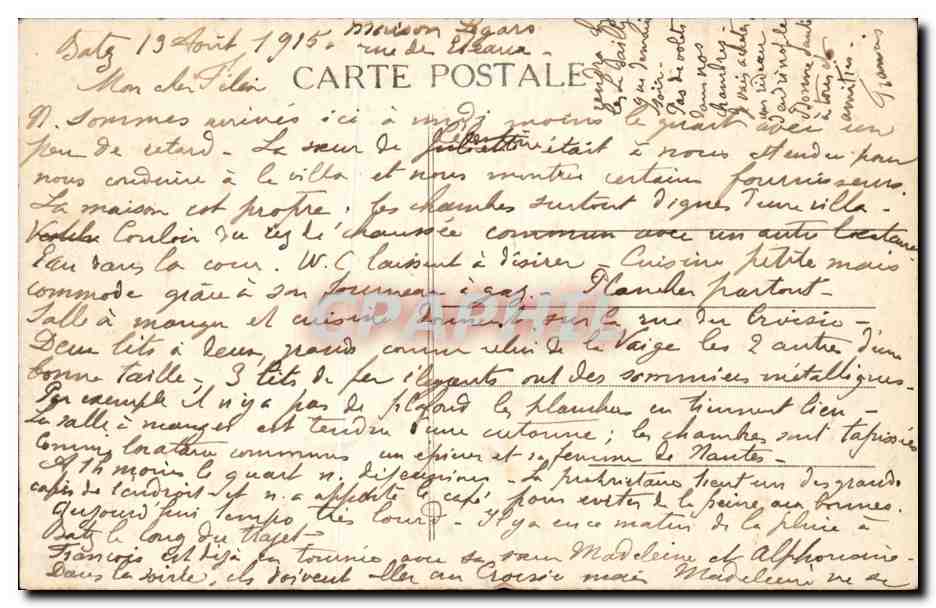 Batz 13 Août 1915. Maison Legars
rue de
Mon cher
CARTE POSTALE
N. sommes arrivés ici à midi moins le quart avec un
peu de retard - La sœur de était à nous attendre pour
nous conduire à la villa et nous montrer certains fournisseurs.
La maison est propre, les chambres surtout dignes d'une villa -
Couloir du rez de chaussée commun avec un autre locataire
Eau dans la cour. W.C laissent à désirer - Cuisine petite mais
commode grâce à son fourneau à gaz. Plancher partout -
Salle à manger et cuisine donnent sur la rue du Croisic -
Deux lits à deux, grands comme celui de la Vaige les 2 autres d'une
bonne taille - 3 lits de fer élégants ont des sommiers métalliques -
Par exemple il n'y a pas de plafond les planches en tiennent lieu -
La salle à manger est tendue d'une cretonne ; les chambres sont tapissées
Comme locataire commun un épicier et sa femme de Nantes -
A 1h moins le quart n. déjeunions - La propriétaire tient un des grands
cafés de l'endroit et n. a apporté le café pour éviter de la peine aux bonnes.
Aujourd'hui temps très lourd - Il y a eu ce matin de la pluie à
Batz le long du trajet -
François est déjà en tournée avec sa sœur Madeleine et Alphonsine -
Dans la soirée, ils doivent aller au Croisic mais Madeleine ne se
rendra
que demain
soir -
Pas de volets
dans nos
chambres -
je vais acheter
un rideau
Donne
à tous
amitiés -